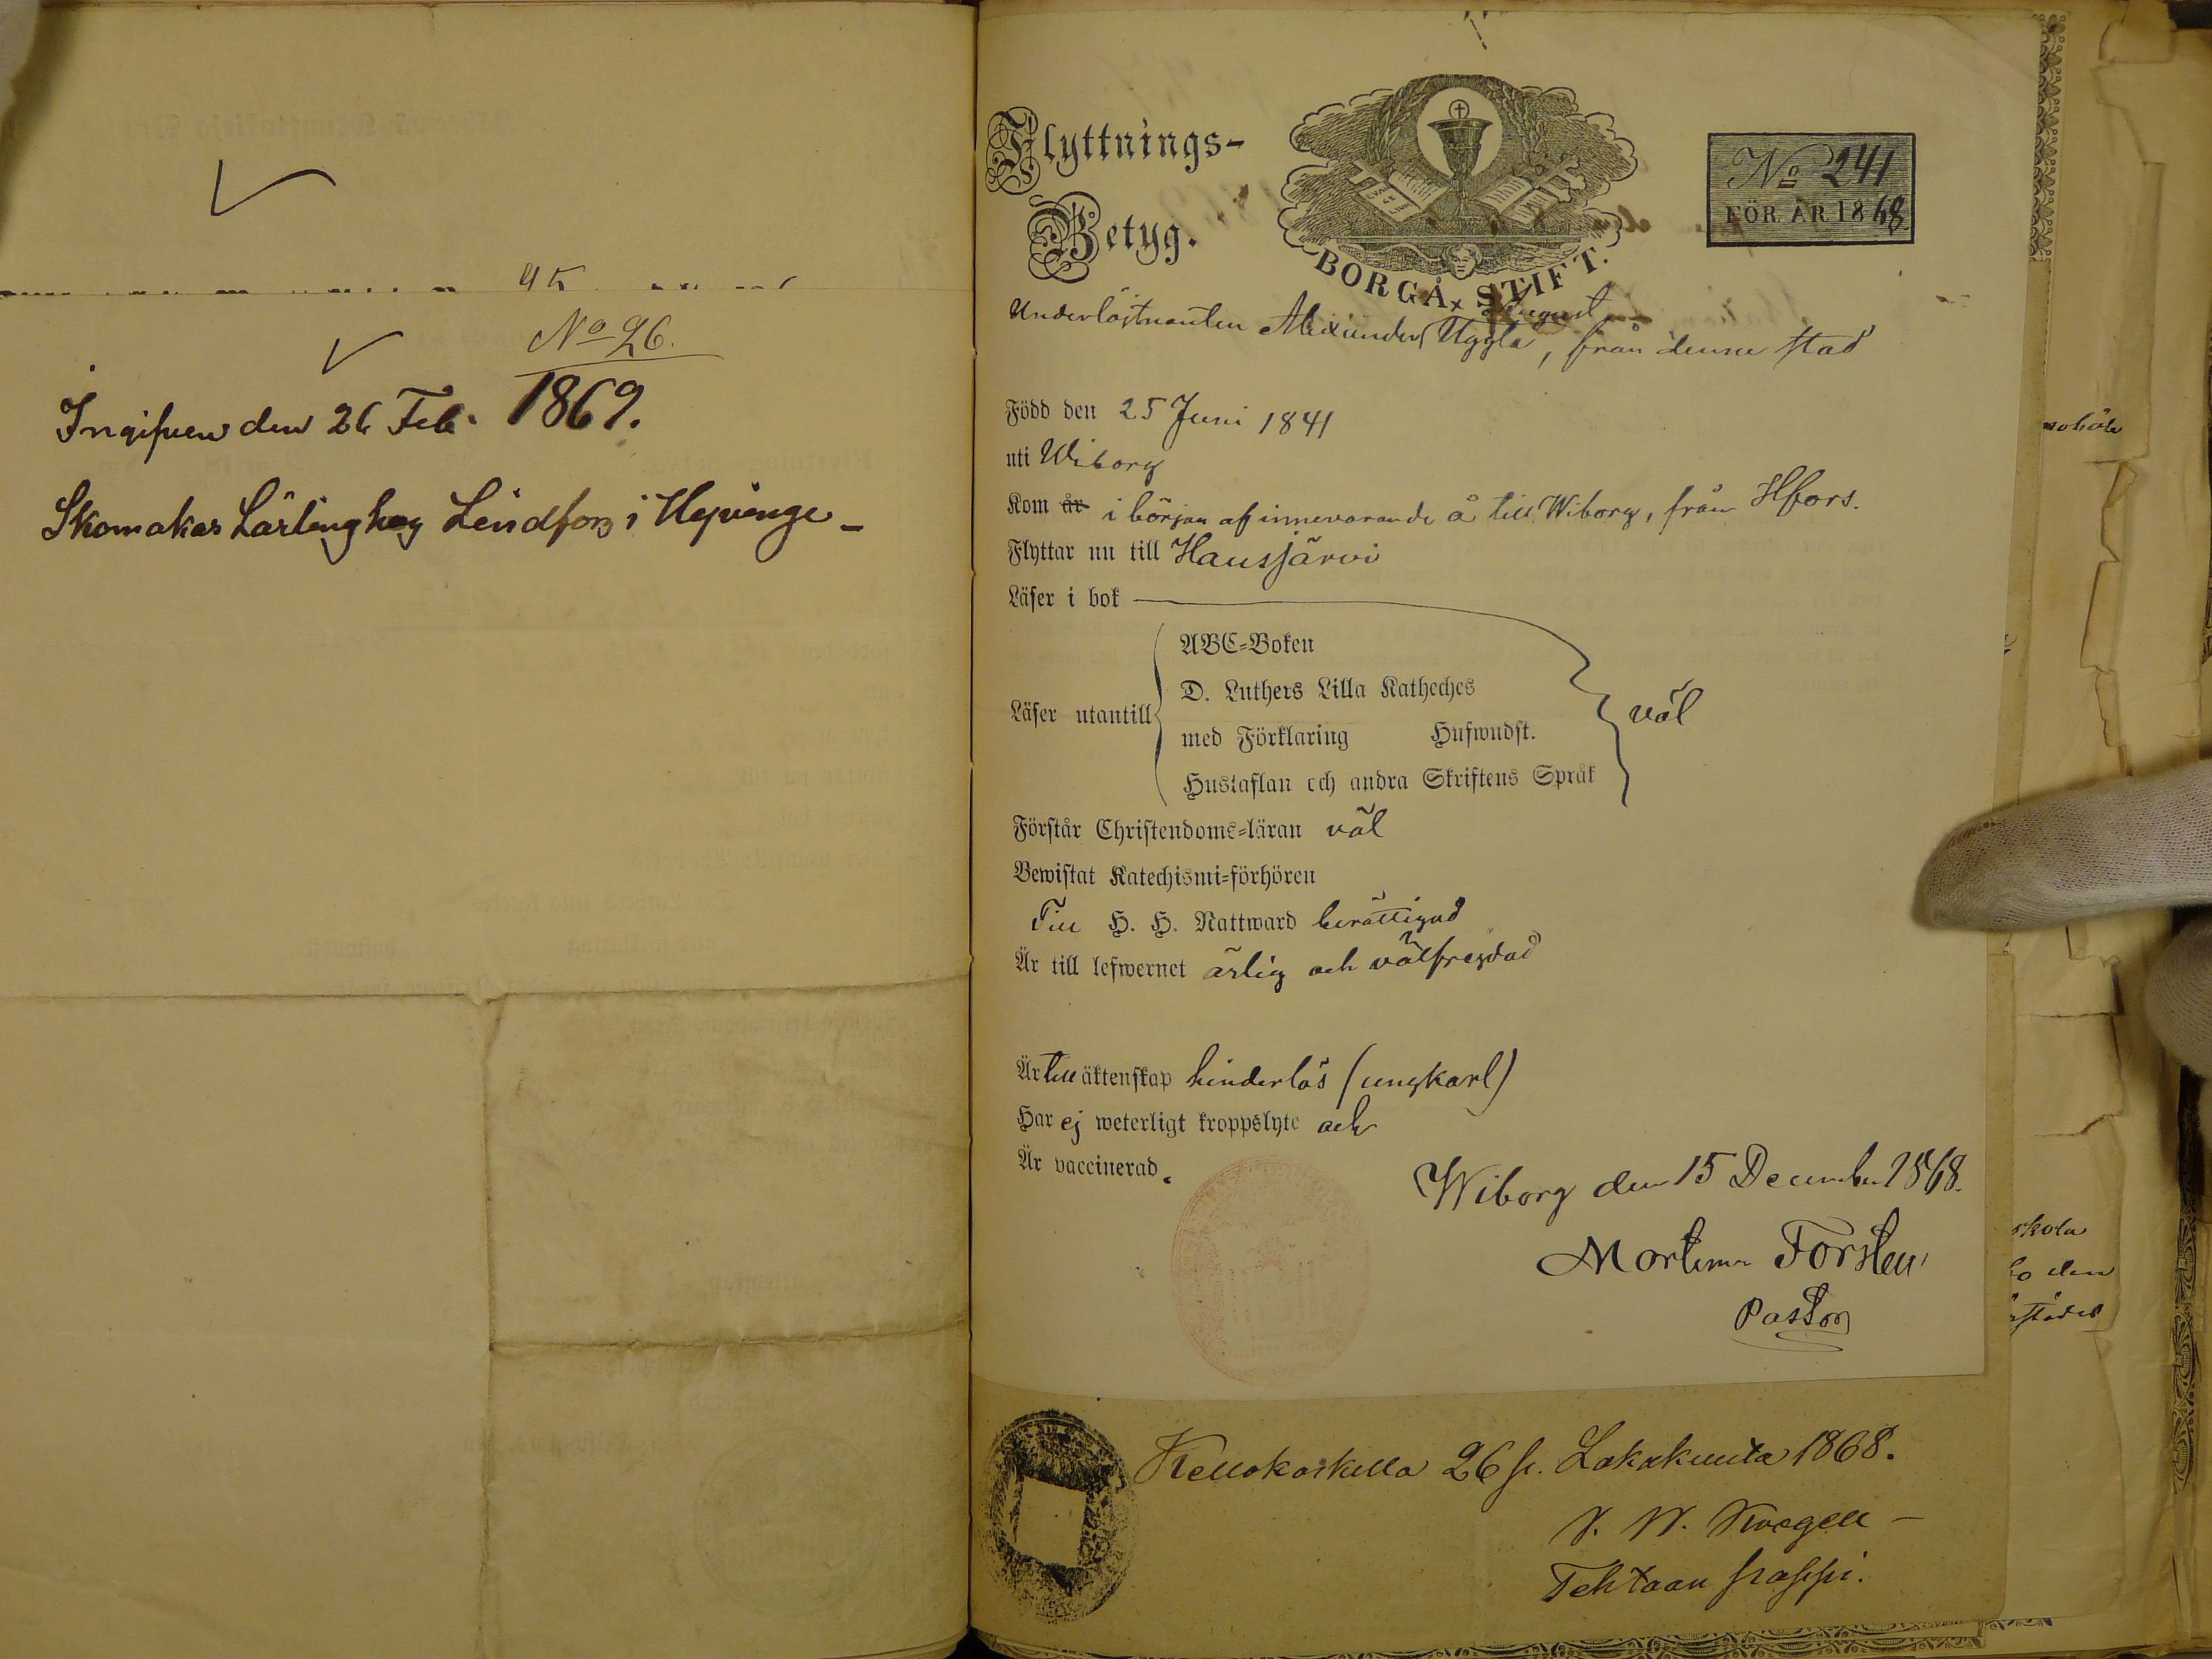 No 26.
1869.
Ingifven den 26 Feb.
Skomakar Lärling hos Lindfors i Hyvinge
Flyttnings-
Betyg.
BORGÅ STIFT.
No 241
FÖR ÅR 1868
August
Underlöjtnanten Alexander Uggla, från denne stad
Född den 25 Juni 1841
uti Wiborg
Kom år i början af innevarande å till Wiborg, från Hfors.
Flyttar nu till Hausjärvi
Läser i bok
Läser utantill
ABC-Boken
D. Luthers Lilla Katheches
med Förklaring Hufwudst.
Hustaflan och andra Skriftens Språk
väl
Förstår Christendoms-läran väl
Bewistat Katechismi-förhören
Till H. H. Nattward berättigad
Är till lefwernet ärlig och välfrejdad
Är till äktenskap hinderlös (ungkarl)
Har ej weterligt kroppslyte och
Är vaccinerad.
Wiborg den 15 December 1868.
Mortimer Forsten
Pastor
Kellokoskella 26 p. Lokakuuta 1868.
Tehtaan pappi.
skola
den